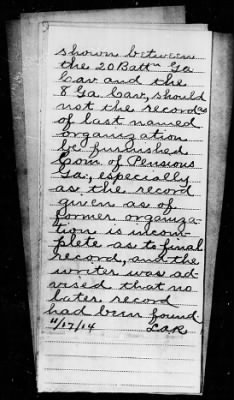 shown between
the 20 Battn Ga
Cav and the
8 Ga. Cav, should
not the record as
of last named
organization
be furnished
Com of Pensions
Ga., especially
as the record
given as of
former organiza-
tion is incom-
plete as to final
record, and the
writer was ad-
vised that no
later record
had been found.
11/17/14 LAR